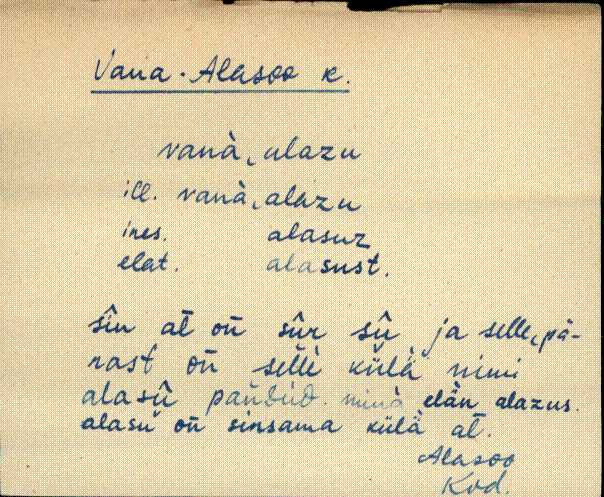 Vana-Alasoo k.
vanà‿alazu
ill. vanà‿alazu
ines. alasuz
elat. alasust.
sîn al̄ on̄ sûr sû‿ja selle‿pä-
rast on̄ sellè külä nimi
alasû pandud. minà elän alazus.
alasū on̄ sinsama külä al̄.
Alasoo
Kod.